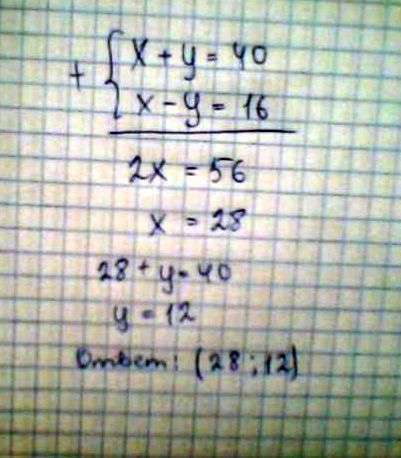 x + y = 40
+ {
x - y = 16
2x = 56
x = 28
28 + y = 40
y = 12
Ответ: (28; 12)